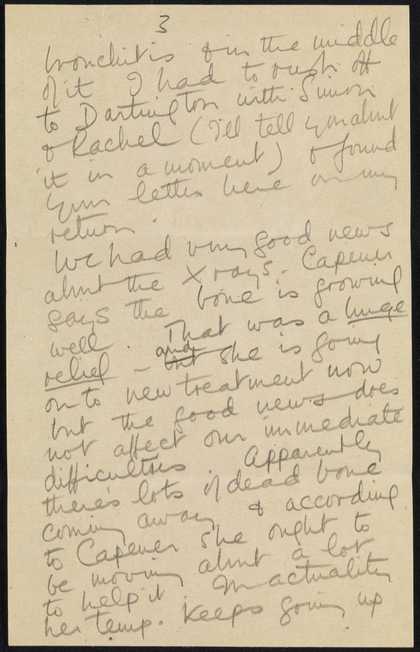 3
bronchitis & in the middle
of it I had to rush off
to Dartington with Simon
& Rachel (I'll tell you about
it in a moment) & found
your letter here on my
return.
We had very good news
about the X rays. Capener
says the bone is growing
well. That was a huge
relief - but and she is going
on to new treatment now
but the good news does
not affect our immediate
difficulties. Apparently
there's lots of dead bone
coming away & according
to Capener she ought to
be moving about a lot
to help it. In actuality
her temp. keeps going up